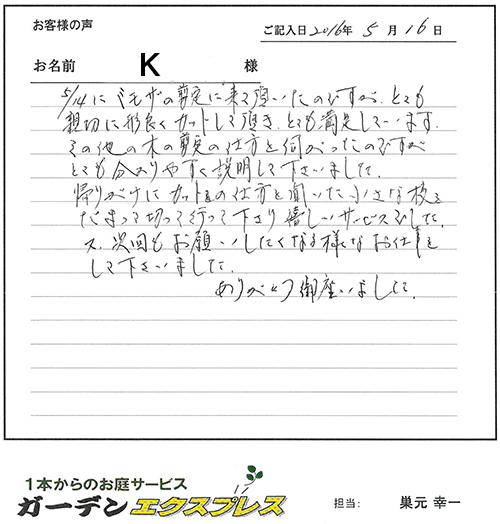 お客様の声
ご記入日2016年 5月16日
お名前 K 様
5/14にミモザの剪定に来て頂いたのですが、とても
親切に形良くカットして頂き、とても満足しています。
その他の木の剪定の仕方を伺がったのですが
とても分かりやすく説明して下さいました。
帰りがけにカットの仕方を聞いた小さな枝を
だまって切って行って下さり嬉しいサービスでした。
又、次回もお願いしたくなる様なお仕事を
して下さいました。
ありがとう御座いました。
1本からのお庭サービス
ガーデンエクスプレス
担当: 巣元 幸一